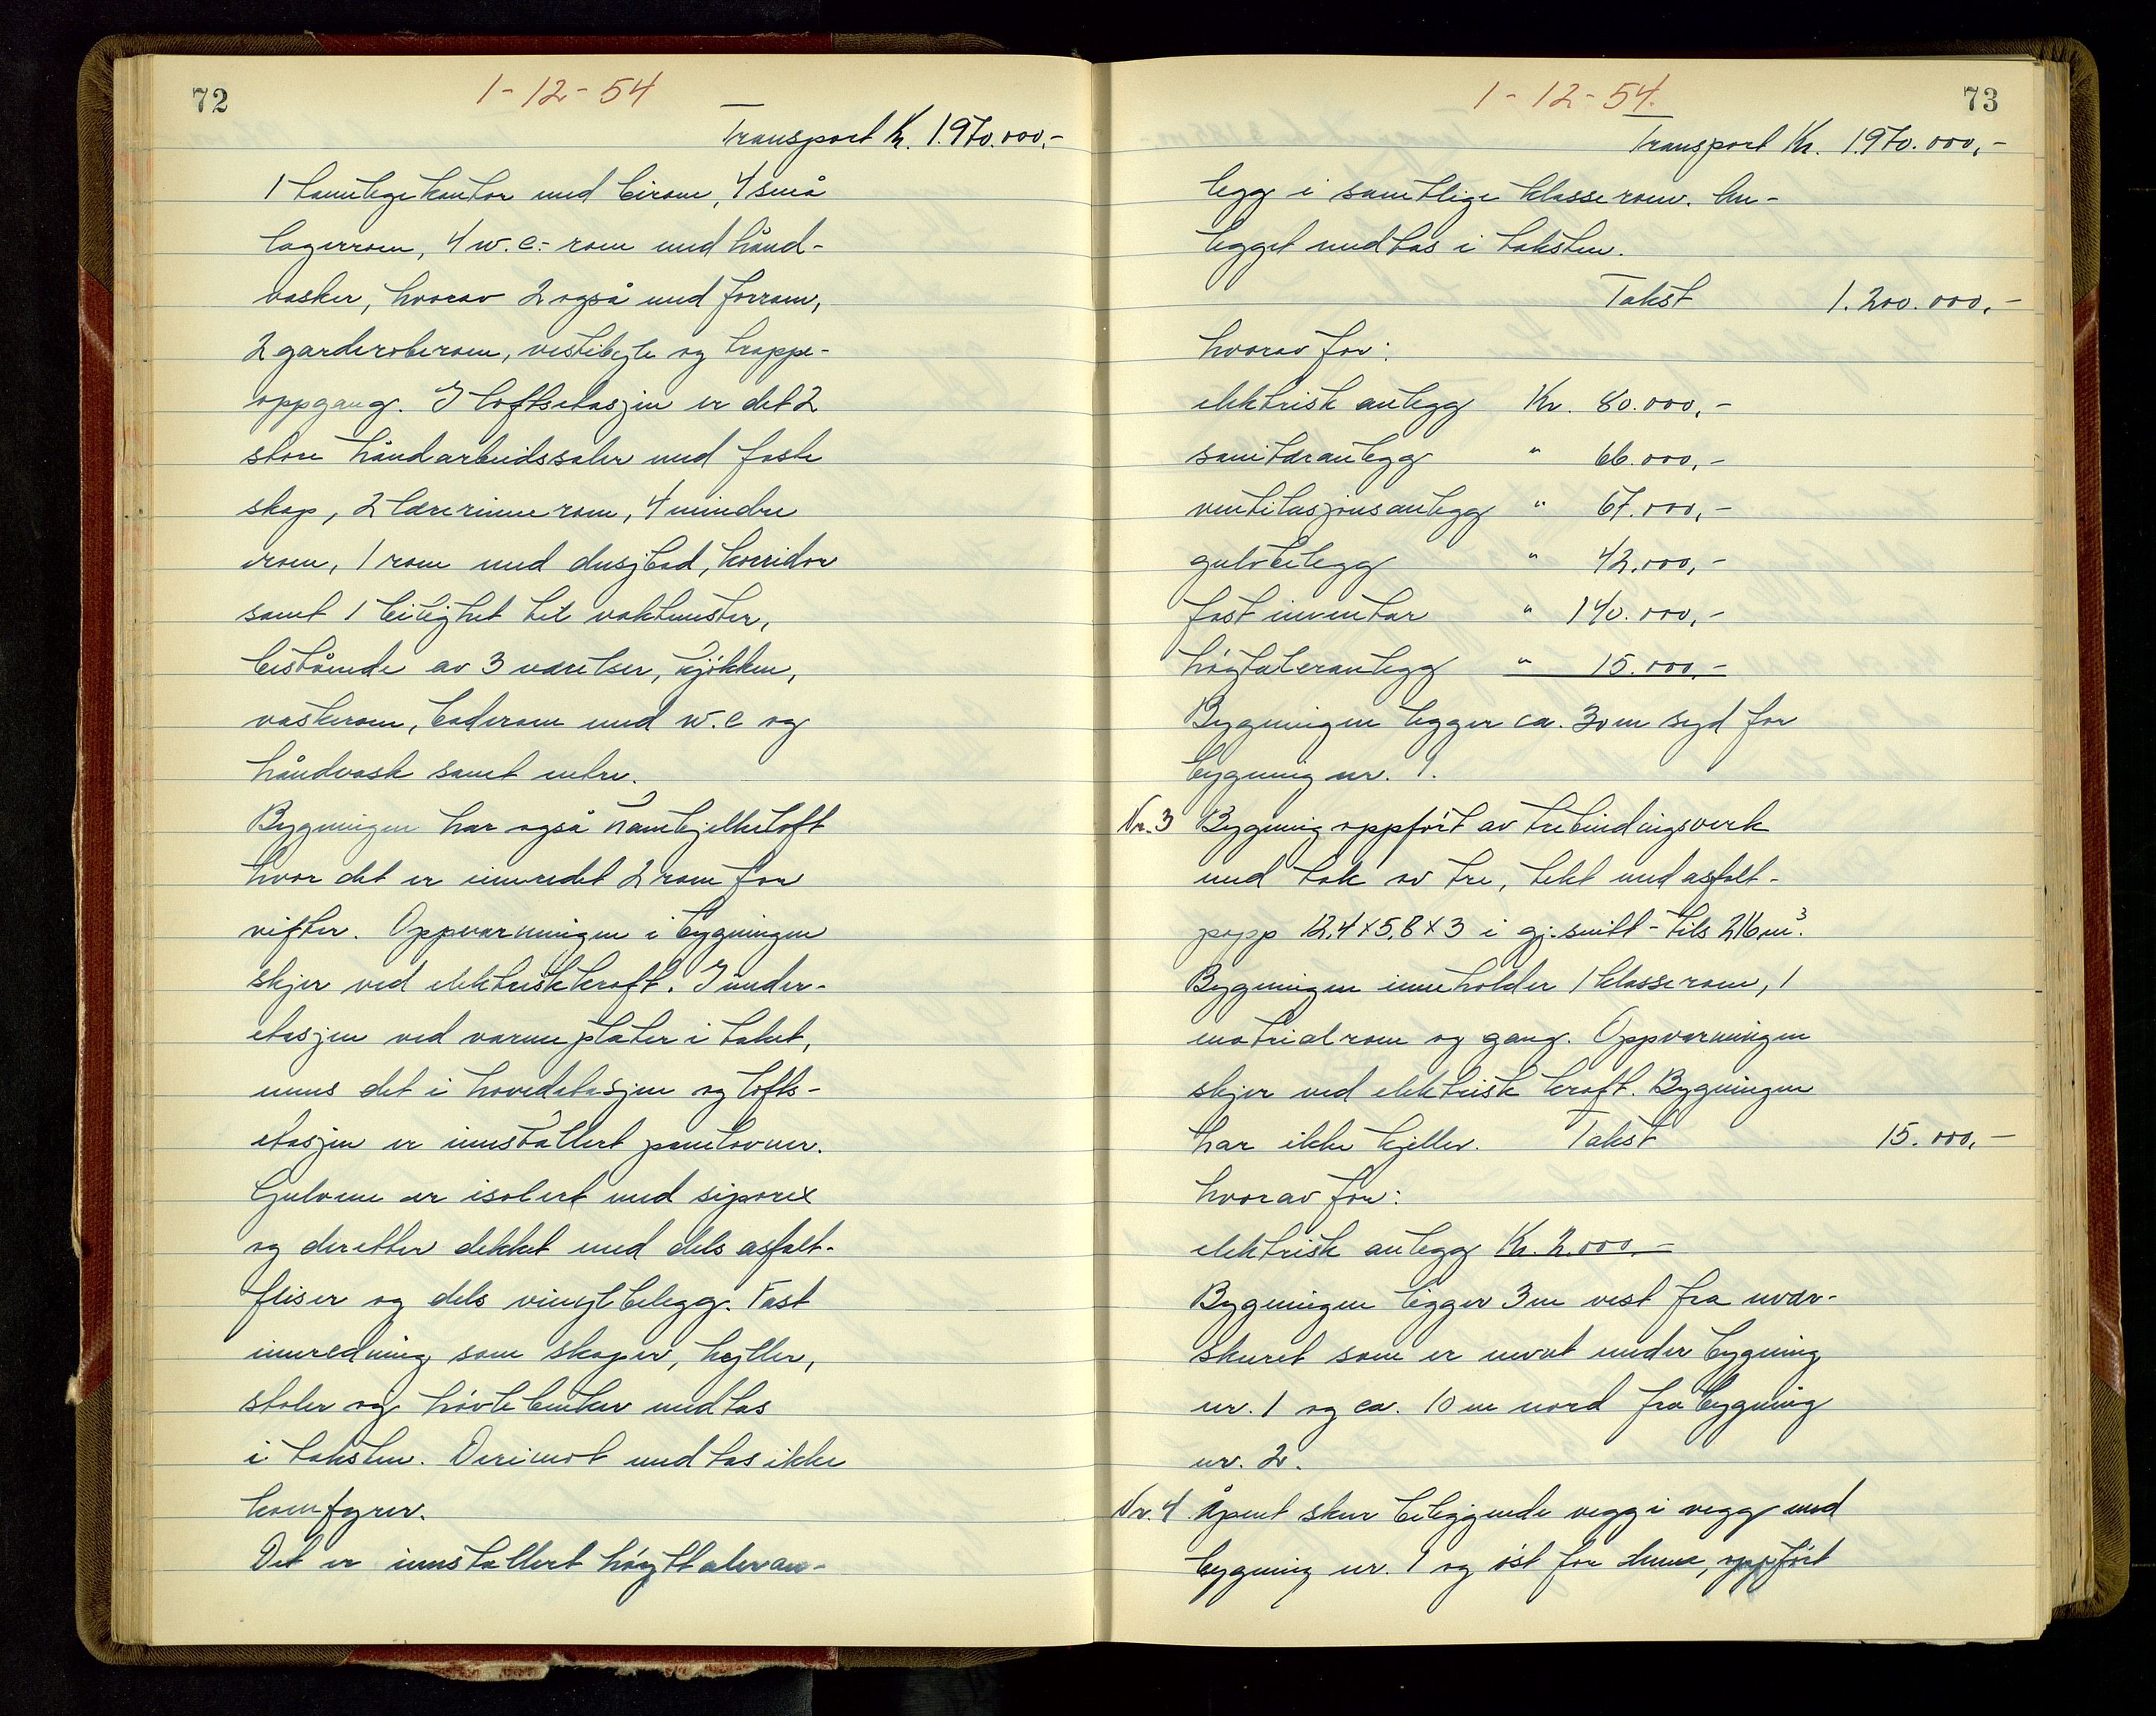 72
1-12-54
Transport Kr. 1.970.000,-
1 tannlegekontor med birom, 4 små
lagerrom, 4 w.c.-rom med hånd-
vasker, hvorav 2 også med forrom,
2 garderoberom, vestibyle og trappe-
oppgang. I loftsetasjen er det 2
store håndarbeidssaler med faste
skap, 2 lærerinnerom, 4 mindre
rom, 1 rom med dusjbad, korridor
samt 1 leilighet til vaktmester,
bestående av 3 værelser, kjökken,
vaskerom, baderom med w.c og
håndvask samt entre.
Bygningen har også hanebjelkeloft
hvor det er innredet 2 rom for
vifter. Oppvarmingen i bygningen
skjer ved elektrisk kraft. I under-
etasjen ved varmeplater i taket,
mens det i hovedetasjen og lofts-
etasjen er innstallert panelovner.
Gulvene er isolert med siporex
og deretter dekket med dels asfalt-
fliser og dels vinylbelegg. Fast
innredning som skaper, hyller,
stoler og hövlebenker medtas
i taksten. Derimot medtas ikke
komfyrer.
Det er innstallert höyttaleran-
73
1-12-54.
Transport Kr. 1.970.000,-
legg i samtlige klasserom. An-
legget medtas i taksten.
Takst 1.200.000,-
hvorav for:
elektrisk anlegg Kr. 80.000,-
sanitæranlegg " 66.000,-
ventilasjonsanlegg " 67.000,-
gulvbelegg " 42.000,-
fast inventar " 140.000,-
höytaleranlegg " 15.000,-
Bygningen ligger ca. 30 m syd for
bygning nr. 1.
Nr. 3 Bygning oppfört av trebindingsverk
med tak av tre, tekt med asfalt-
papp 12,4 x 5,8 x 3 i gj.snitt - tils 216 m³.
Bygningen inneholder 1 klasserom, 1
matrialrom og gang. Oppvarmingen
skjer ved elektrisk kraft. Bygningen
har ikke kjeller. Takst 15.000,-
hvorav for:
elektrisk anlegg Kr. 2.000,-
Bygningen ligger 3 m vest fra uvær-
skuret som er nevnt under bygning
nr. 1 og ca. 10 m nord fra bygning
nr. 2.
Nr. 4 Åpent skur beliggende vegg i vegg med
bygning nr. 1 og öst for denne, oppfört